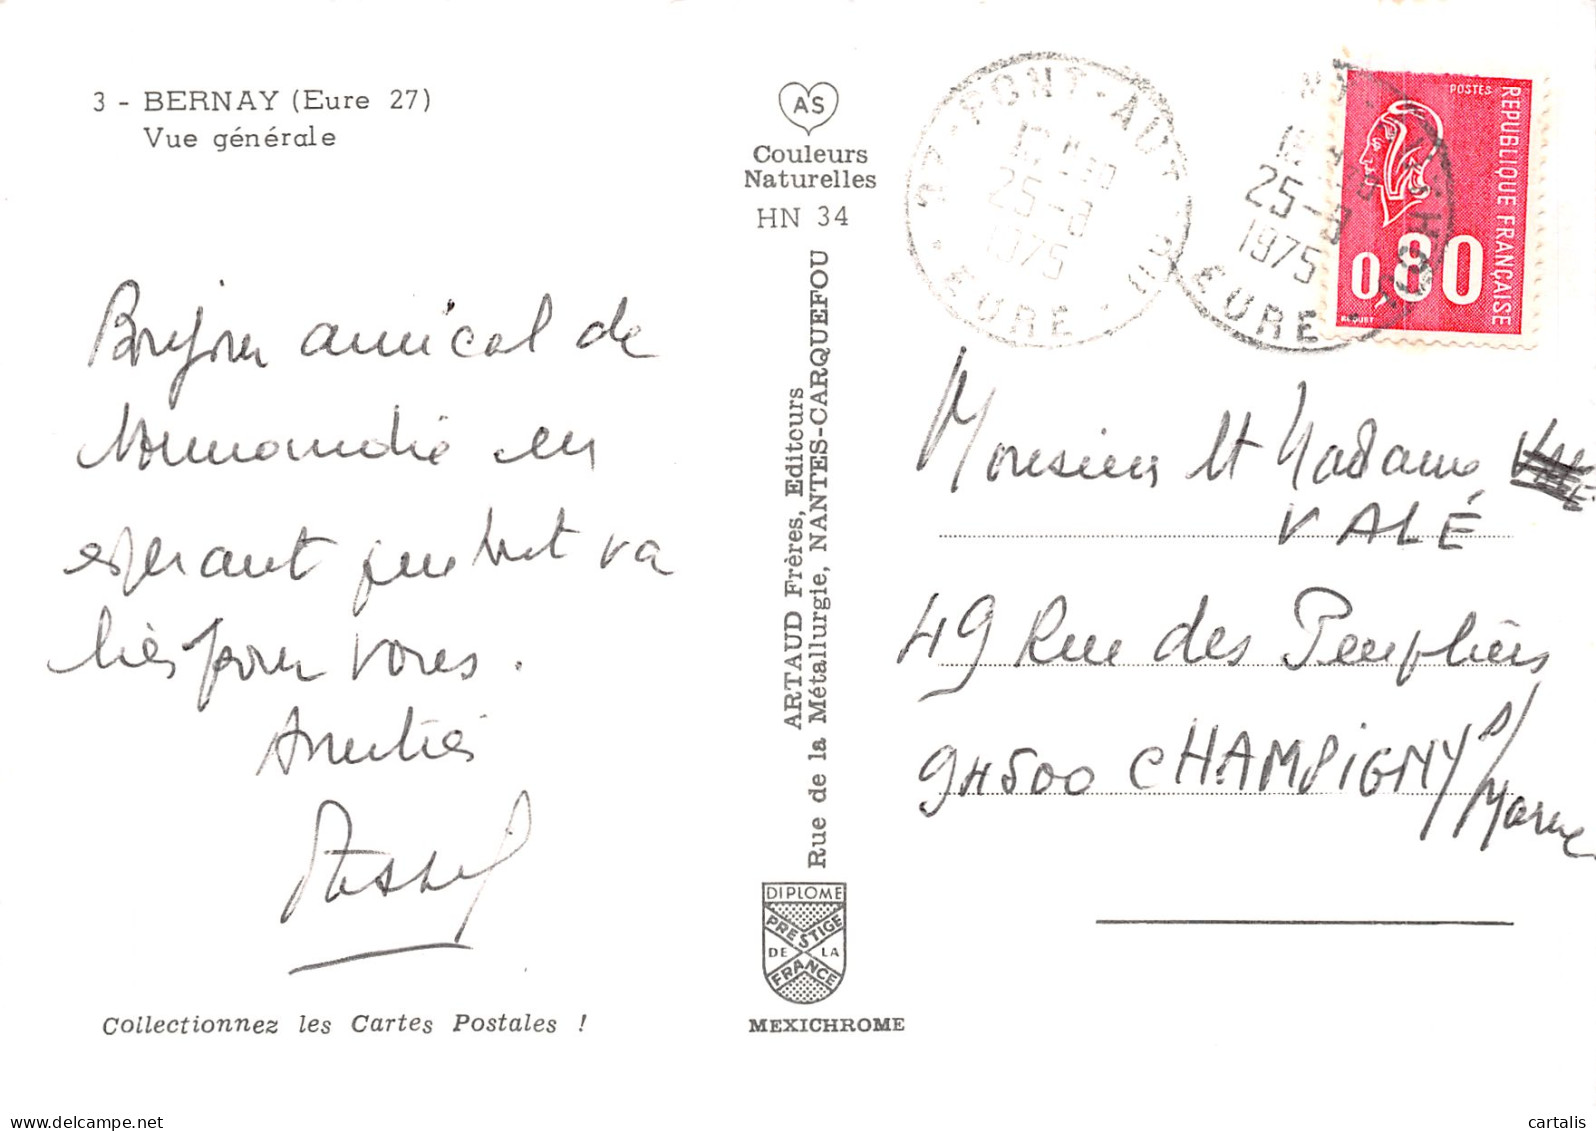 3 - BERNAY (Eure 27)
Vue générale
Bonjour amical de
Normandie en
espérant que tout va
bien pour vous.
Amitiés
Collectionnez les Cartes Postales !
AS
Couleurs
Naturelles
HN 34
ARTAUD Frères, Editeurs
Rue de la Métallurgie, NANTES-CARQUEFOU
DIPLOME
PRESTIGE
DE LA
FRANCE
MEXICHROME
27 - PONT-AUTHOU
25-8
1975
EURE
25-8
1975
EURE
POSTES
REPUBLIQUE FRANÇAISE
0,80
Monsieur et Madame
VALÉ
49 Rue des Peupliers
94500 CHAMPIGNY s/
Marne
cartalis
cartalis